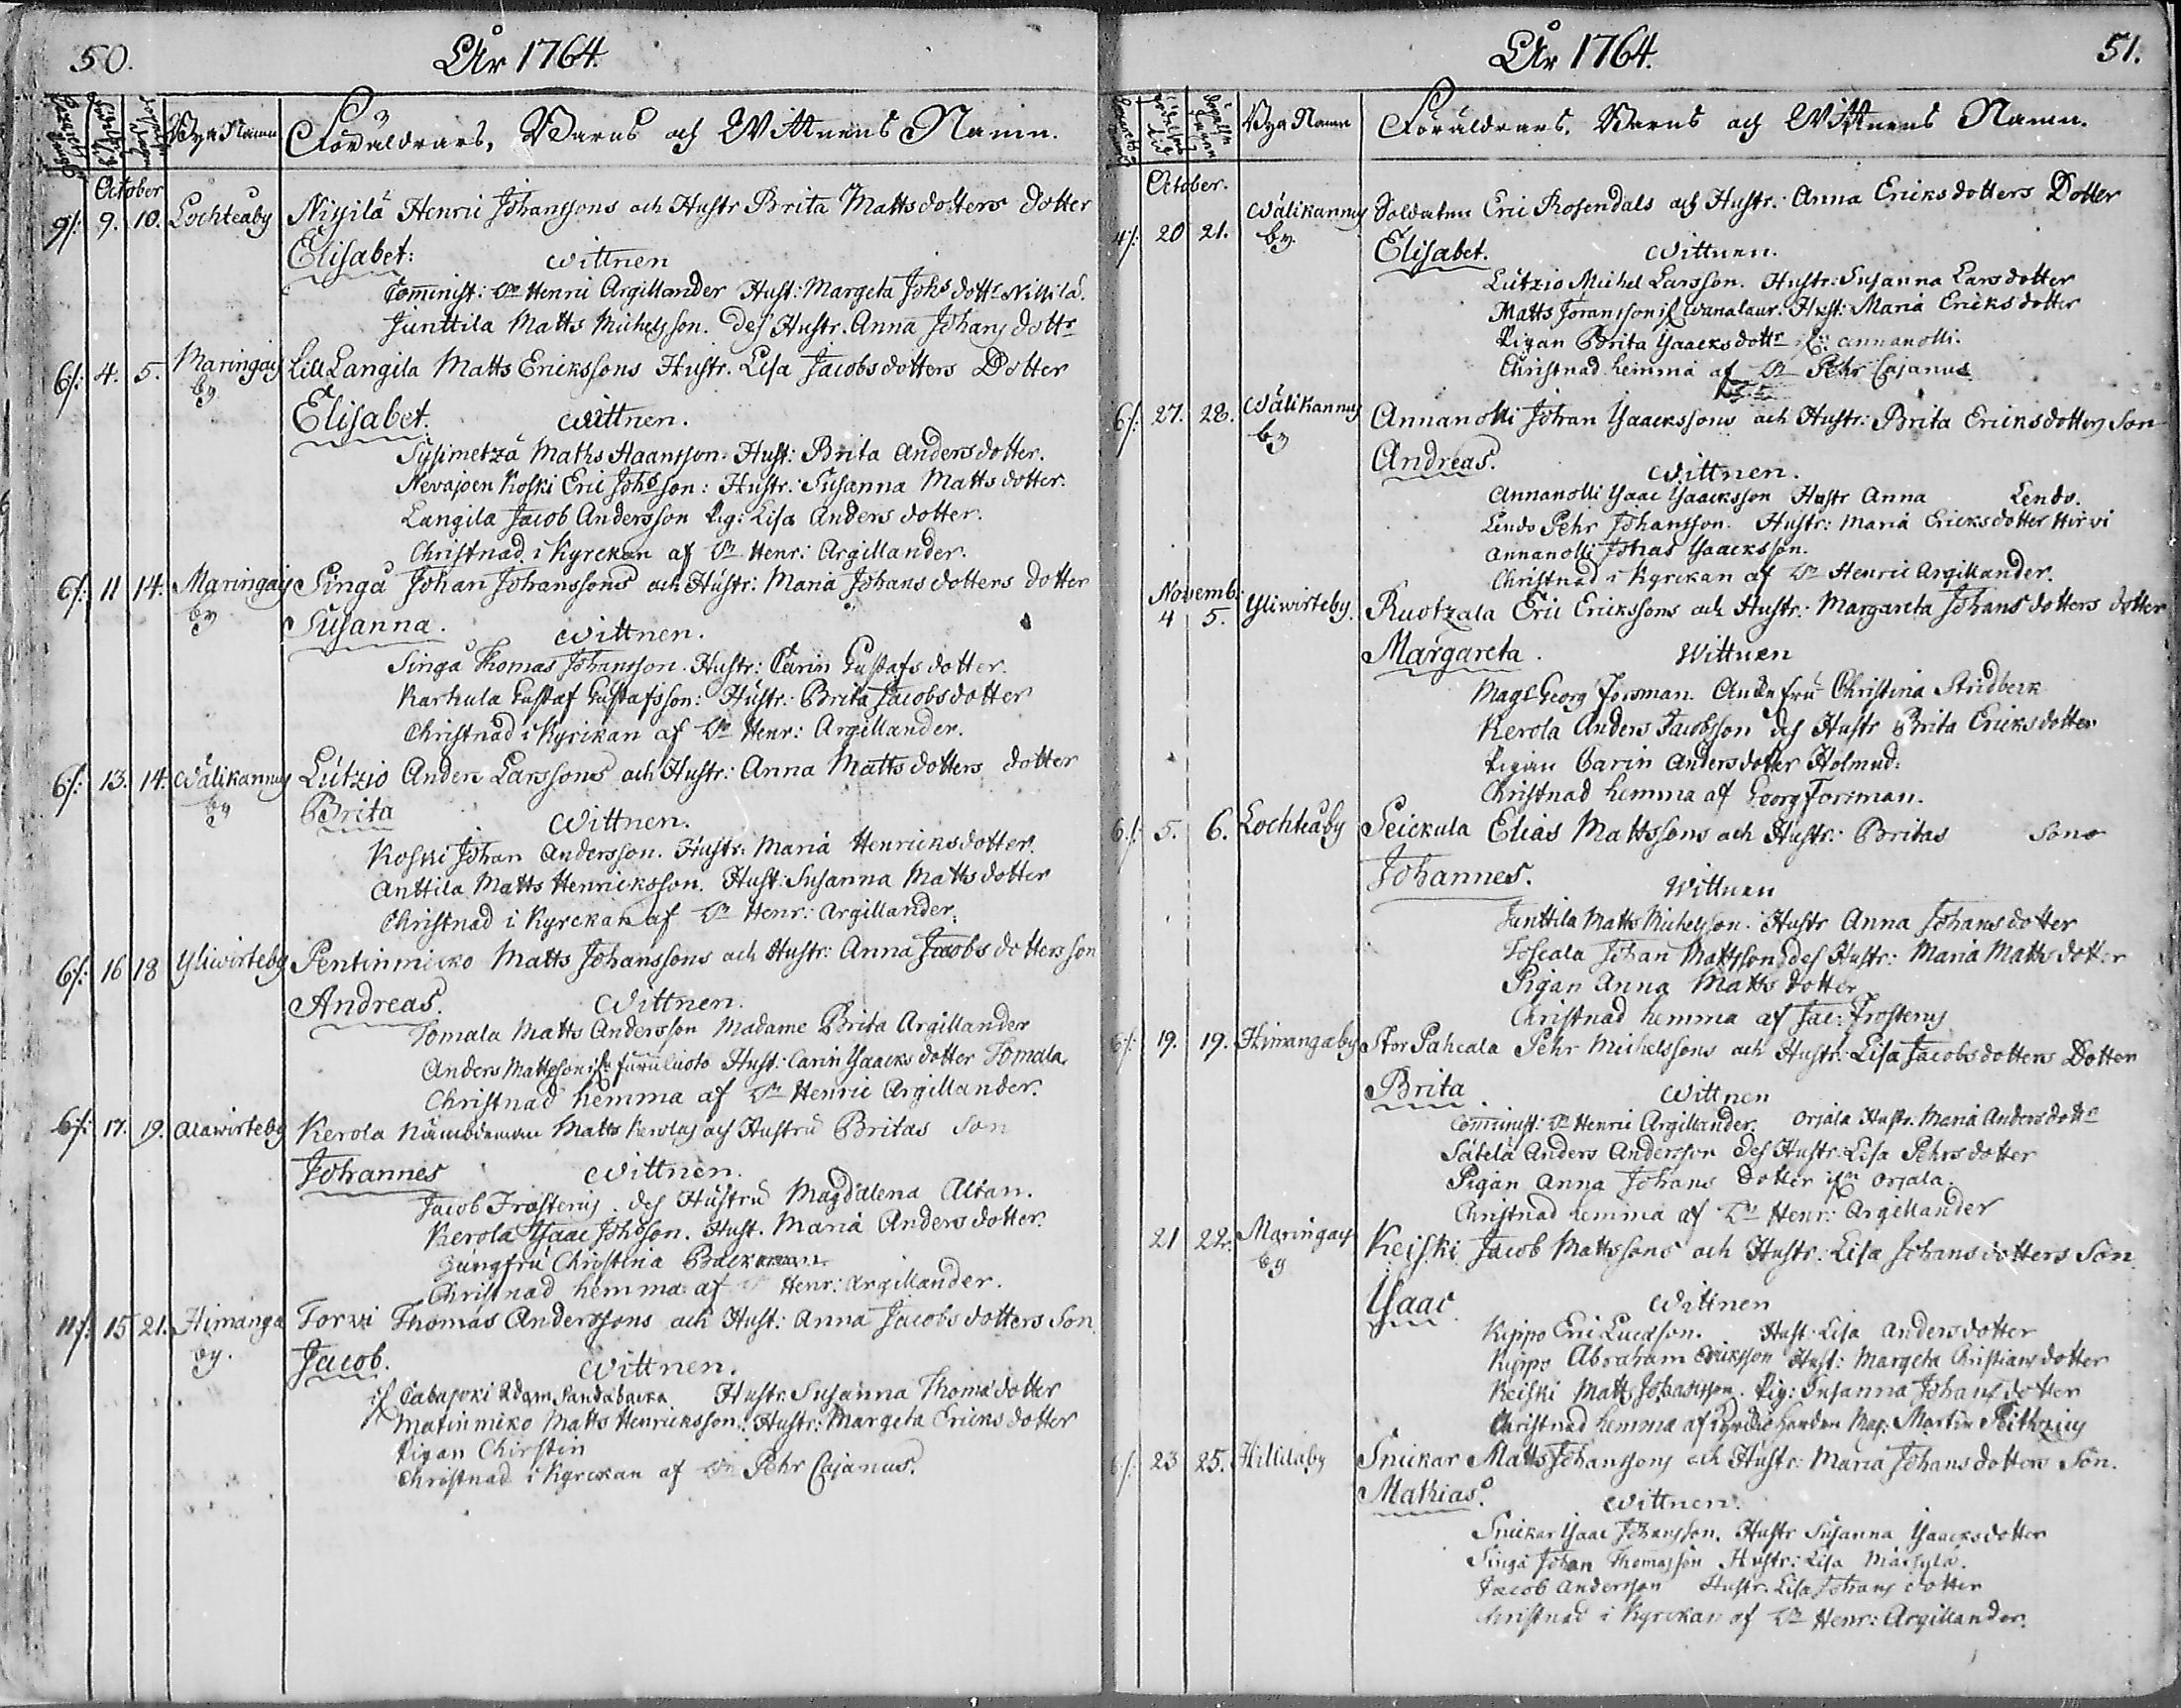 50.
År 1764.
Bya Namn
Föräldrars, Barns och Wittnens Namn.
October
9/: 9. 10. Lochteåby Nissilä Henric Johanssons och Hustr Brita Mattsdotters dotter
Elisabet: Wittnen
Cominist: Dn Henric Argillander Hust: Margeta Johsdottr Nissilä.
Junttila Matts Michelsson. dess Hustr. Anna Johans dottr
6/: 4. 5. Maringais Lill Langila Matts Erickssons Hustr. Lisa Jacobsdotters Dotter
by
Elisabet. Wittnen.
Sysimetzä Maths Haansson. Hust: Brita Andersdotter.
Nevajoen Koski Eric Johsson: Hustr: Susanna Mattsdotter.
Langila Jacob Andersson Pig: Lisa Anders dotter.
Christnad i Kyrckan af Dn Henr: Argillander.
6/: 11 14. Maringais Singå Johan Johanssons och Hustr: Maria Johansdotters dotter
by
Susanna. Wittnen.
Singå Thomas Johansson. Hustr: Carin Gustafsdotter.
Karhula Gustaf Gustafsson: Hustr: Brita Jacobsdotter
Christnad i Kyrckan af Dn Henr: Argillander.
6/: 13. 14. Wälikannus Lützio Anders Larssons och Hustr: Anna Mattsdotters dotter
by
Brita Wittnen.
Koski Johan Andersson. Hustr: Maria Henricksdotter.
Anttila Matts Henricksson. Hust: Susanna Mattsdotter
Christnad i Kyrckan af Dn Henr: Argillander.
6/: 16 18 Yliwirteby Pentinmicko Matts Johanssons och Hustr: Anna Jacobs dotters son
Andreas. Wittnen.
Tomala Matts Andersson Madame Brita Argillander
Anders Mattsson Hust: Carin Ysaacksdotter Tomala
Christnad hemma af Dn Henric Argillander.
6/: 17. 19. Alawirteby Kerola Nämdeman Matts Kerolas och Hustru Britas Son
Johannes Wittnen.
Jacob Frosterus. dess Hustru Magdalena Altan.
Kerola Ysaac Johsson. Hust. Maria Andersdotter.
Jungfru Christina Backman
Christnad hemma af Dn Henr: Argillander.
11/: 15 21. Himanga Torvi Thomas Anderssons och Hust: Anna Jacobs dotters Son
by.
Jacob. Wittnen.
Adam Sandabacka Hustr. Susanna Thomædotter
Matinmiko Matts Henricksson. Hustr: Margeta Ericksdotter
Pigan Chirstin
Christnad i Kyrckan af Dn Pehr Cajanus.
År 1764.
51.
Bya Namn
Föräldrars, Barns och Wittnens Namn.
October.
4/: 20 21. Wälikannus Soldaten Eric Rosendals och Hustr: Anna Ericksdotters Dotter
by.
Elisabet. Wittnen.
Lützio Michel Larsson. Hustr: Susanna Larsdotter
Matts Joransson Hust: Maria Ericksdotter
Pigan Brita Ysaacksdottr Annanolli.
Christnad hemma af Dn Pehr Cajanus
6/: 27. 28. Wälikannus Annanolli Johan Ysaackssons och Hustr: Brita Ericksdotters Son
by
Andreas. Wittnen.
Annanolli Ysaac Ysaacksson Hustr Anna Lendo.
Lendo Pehr Johansson. Hustr: Maria Ericksdotter Hirvi
Annanolli Johas Ysaacksson.
Christnad i Kyrckan af Dn Henric Argillander.
Novemb.
4 5. Yliwirteby. Ruotzala Eric Erickssons och Hustr: Margareta Johansdotters dotter
Margareta. Wittnen
Mag: Georg Forsman. Christina Stridbeck
Kerola Anders Jacobsson dess Hustr Brita Ericksdotter
Pigan Carin Andersdotter Holmud:
Christnad hemma af Georg Forsman.
6/: 5. 6. Lochteåby Peickula Elias Mattssons och Hustr: Britas Sono
Johannes. Wittnen
Junttila Matts Michelsson. Hustr Anna Johansdotter
Johan Mattsson, dess Hustr: Maria Mattsdotter
Pigan Anna Matts dotter
Christnad hemma af Jac: Frosterus
6/: 19. 19. Himangaby Stor Pahcala Pehr Michelssons och Hustr: Lisa Jacobsdotters Dotter
Brita. Wittnen
Cominist: Dn Henric Argillander. Orjala Hustr. Maria Andersdottr
Säbelä Anders Andersson dess Hustr: Lisa Pehrsdotter
Pigan Anna Johans Dotter Orjala.
Christnad hemma af Dn Henr: Argillander
21 22. Maringais Keiski Jacob Mattssons och Hustr: Lisa Johansdotters Son
by
Ysaac Wittnen
Kippo Eric Hust: Lisa Andersdotter
Kippo Abraham Ericksson Hust: Margeta Christiansdotter
Keiski Matts Johansson. Pig: Susanna Johansdotter
Christnad hemma af Kyrckioherden Mag: Martin Peitzius
6/: 23 25. Hillilaby Snickar Matts Johanssons och Hustr: Maria Johansdotters Son.
Mathias. Wittnen.
Snickar Ysaac Johansson. Hustr Susanna Ysaacksdotter
Singå Johan Thomasson Hustr: Lisa
Jacob Andersson Hustr. Lisa Johans dotter
Christnad i Kyrckan af Dn Henr: Argillander.